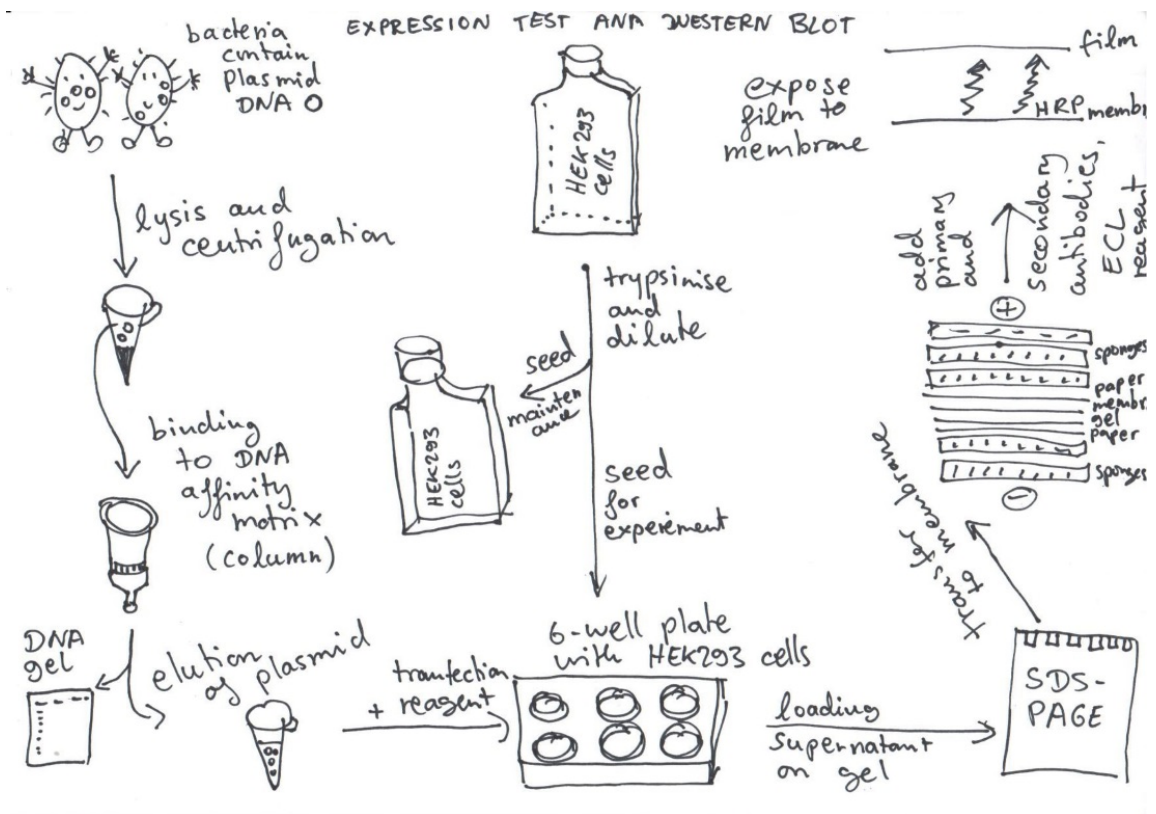 EXPRESSION TEST ANA WESTERN BLOT
bacteria
contain
plasmid
DNA O
lysis and
centrifugation
binding
to DNA
affinity
motrix
(column)
DNA
gel
elution
of plasmid
tranfection
+ reagent
HEK293
cells
trypsinise
and
dilute
seed
mainten
ance
HEK293
cells
seed
for
experiment
6-well plate
with HEK293 cells
loading
supernatant
on gel
SDS-
PAGE
transfer
to membrane
+
sponges
paper
membr
gel
paper
sponges
-
add
primary
and
secondary
antibodies,
ECL
reagent
expose
film to
membrane
film
HRP
membr